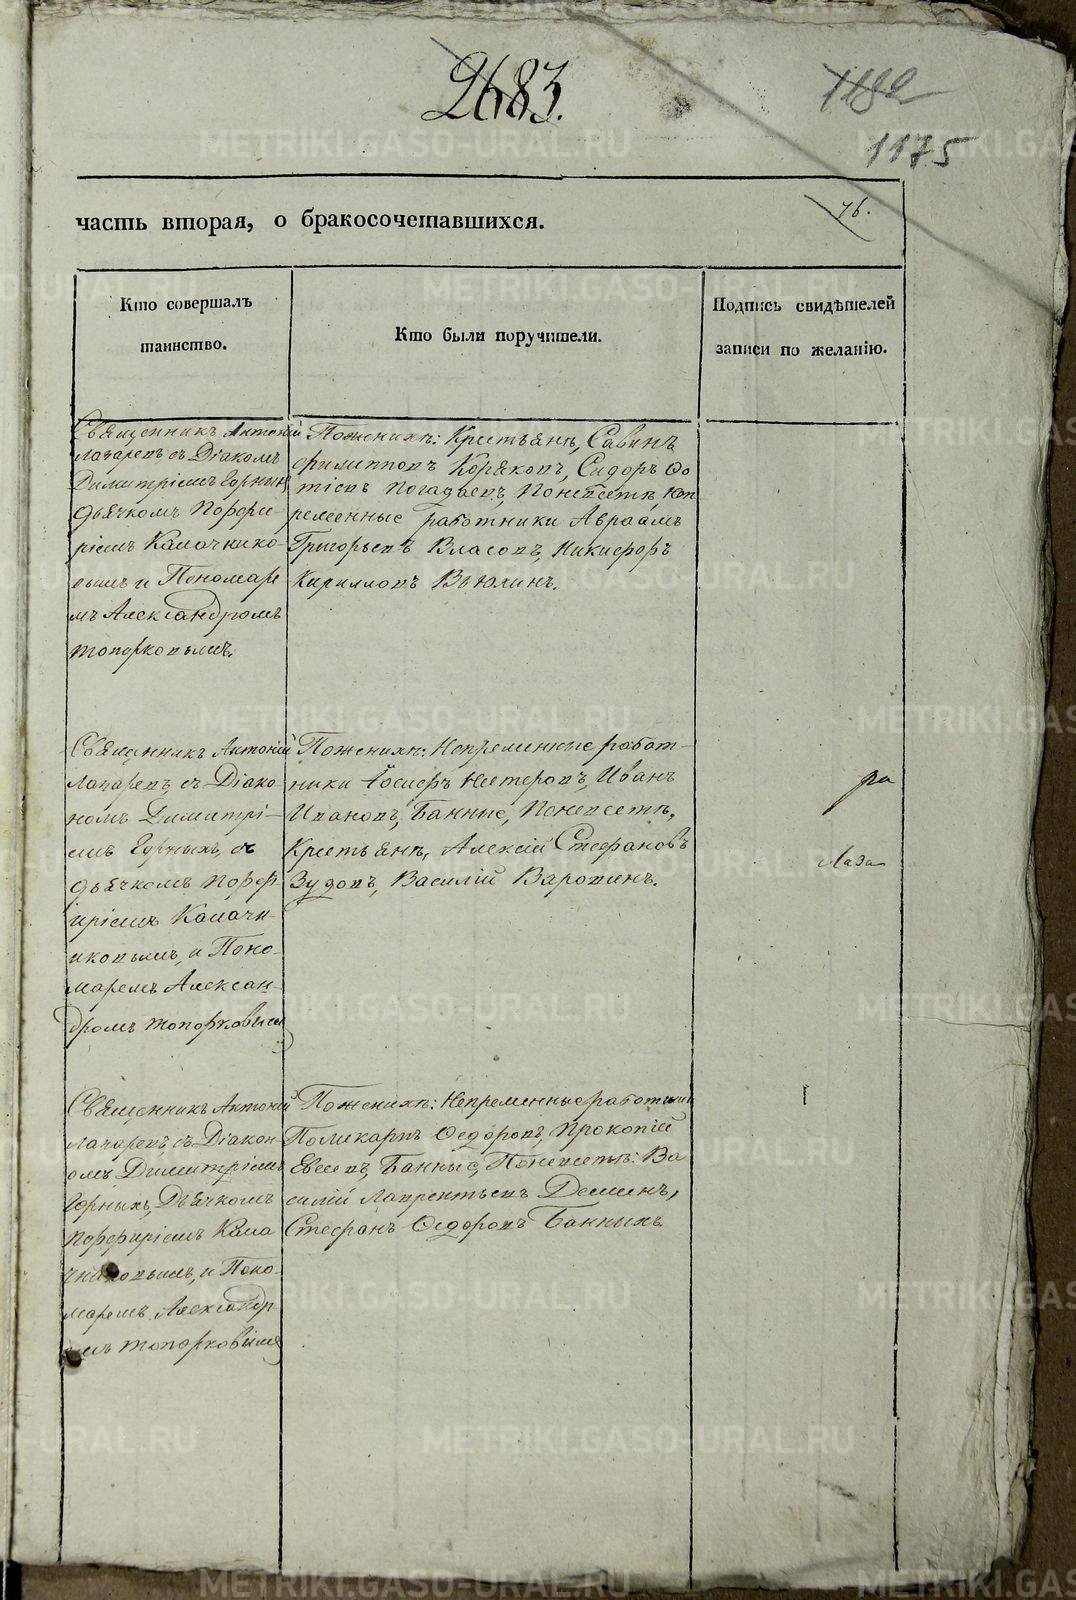 2683.
1182
1175
76.
часть вторая, о бракосочетавшихся.
Кто совершалъ
таинство.
Кто были поручители.
Подпись свидѣтелей
записи по желанію.
Священникъ Антоній
Лазаревъ, съ Діакономъ
Димитріемъ Горныхъ
дьячкомъ Порфи-
ріемъ Калачнико-
вымъ и Пономаре
мъ Александромъ
Топорковымъ.
Поженихѣ: Крестьянѣ, Савинъ
Филипповъ Коряковъ, Сидоръ Фо
тіевъ Погадаевъ, Поневестѣ Неп
ременные работники Авраамъ
Григорьевъ Власовъ, Никифоръ
Кирилловъ Вьюхинъ.
Священникъ Антоній
Лазаревъ, съ Діако
номъ Димитрі-
емъ Горныхъ, съ
дьячкомъ Порф-
иріемъ Калачни-
ковымъ, и Поно-
маремъ Алексан-
дромъ Топорковымъ
Поженихѣ: Непременные работ-
ники Іосифъ Нестеровъ, Иванъ
Ивановъ, Банные, Поневестѣ,
Крестьянѣ, Алексій Стефановъ
Зудовъ, Василій Варопинъ.
ра
Лаза
Священникъ Антоній
Лазаревъ, съ Діакон-
омъ Димитріемъ
Горныхъ, Дьячкомъ
Порфиріемъ Кала
чниковымъ, и Поно-
маремъ Александр-
омъ Топорковымъ
Поженихѣ: Непременные работники
Поликарпъ Федоровъ, Прокопій
Евсевъ, Банные, Поневестѣ: Ва
силій Лаврентьевъ Деминъ,
Стефанъ Федоровъ Банныхъ
METRIKI.GASO-URAL.RU